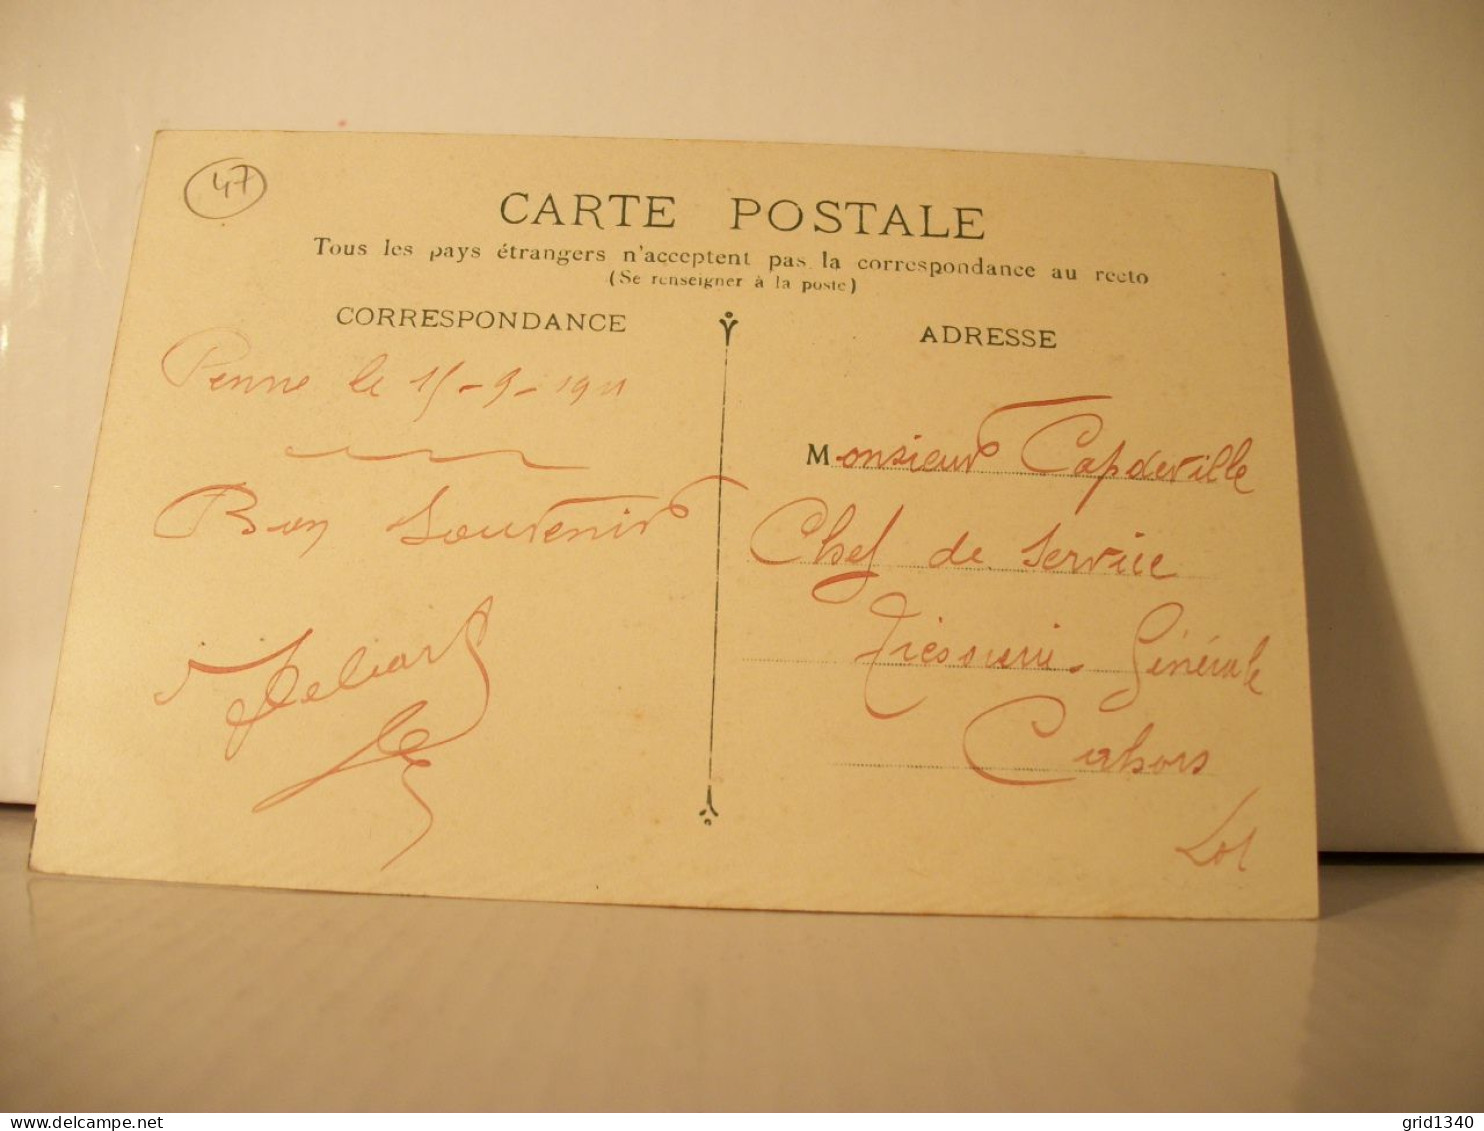 47
CARTE POSTALE
Tous les pays étrangers n'acceptent pas la correspondance au recto
(Se renseigner à la poste)
CORRESPONDANCE
Penne le 15-9-1911
Bon Souvenir
ADRESSE
Monsieur Capdeville
Chef de Service
Trésorerie Générale
Cahors
Lot
grid1340